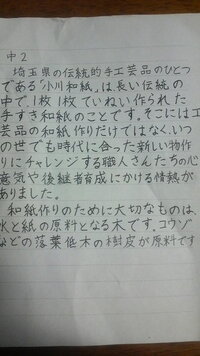 中2
埼玉県の伝統的手工芸品のひとつ
である「小川和紙」は、長い伝統の
中で、1枚1枚ていねい作られた
手すき和紙のことです。そこには工
芸品の和紙作りだけではなく、いつ
の世でも時代に合った新しい物作
りにチャレンジする職人さんたちの心
意気や後継者育成にかける情熱が
ありました。
和紙作りのために大切なものは、
水と紙の原料となる木です。コウゾ
などの落葉低木の樹皮が原料です